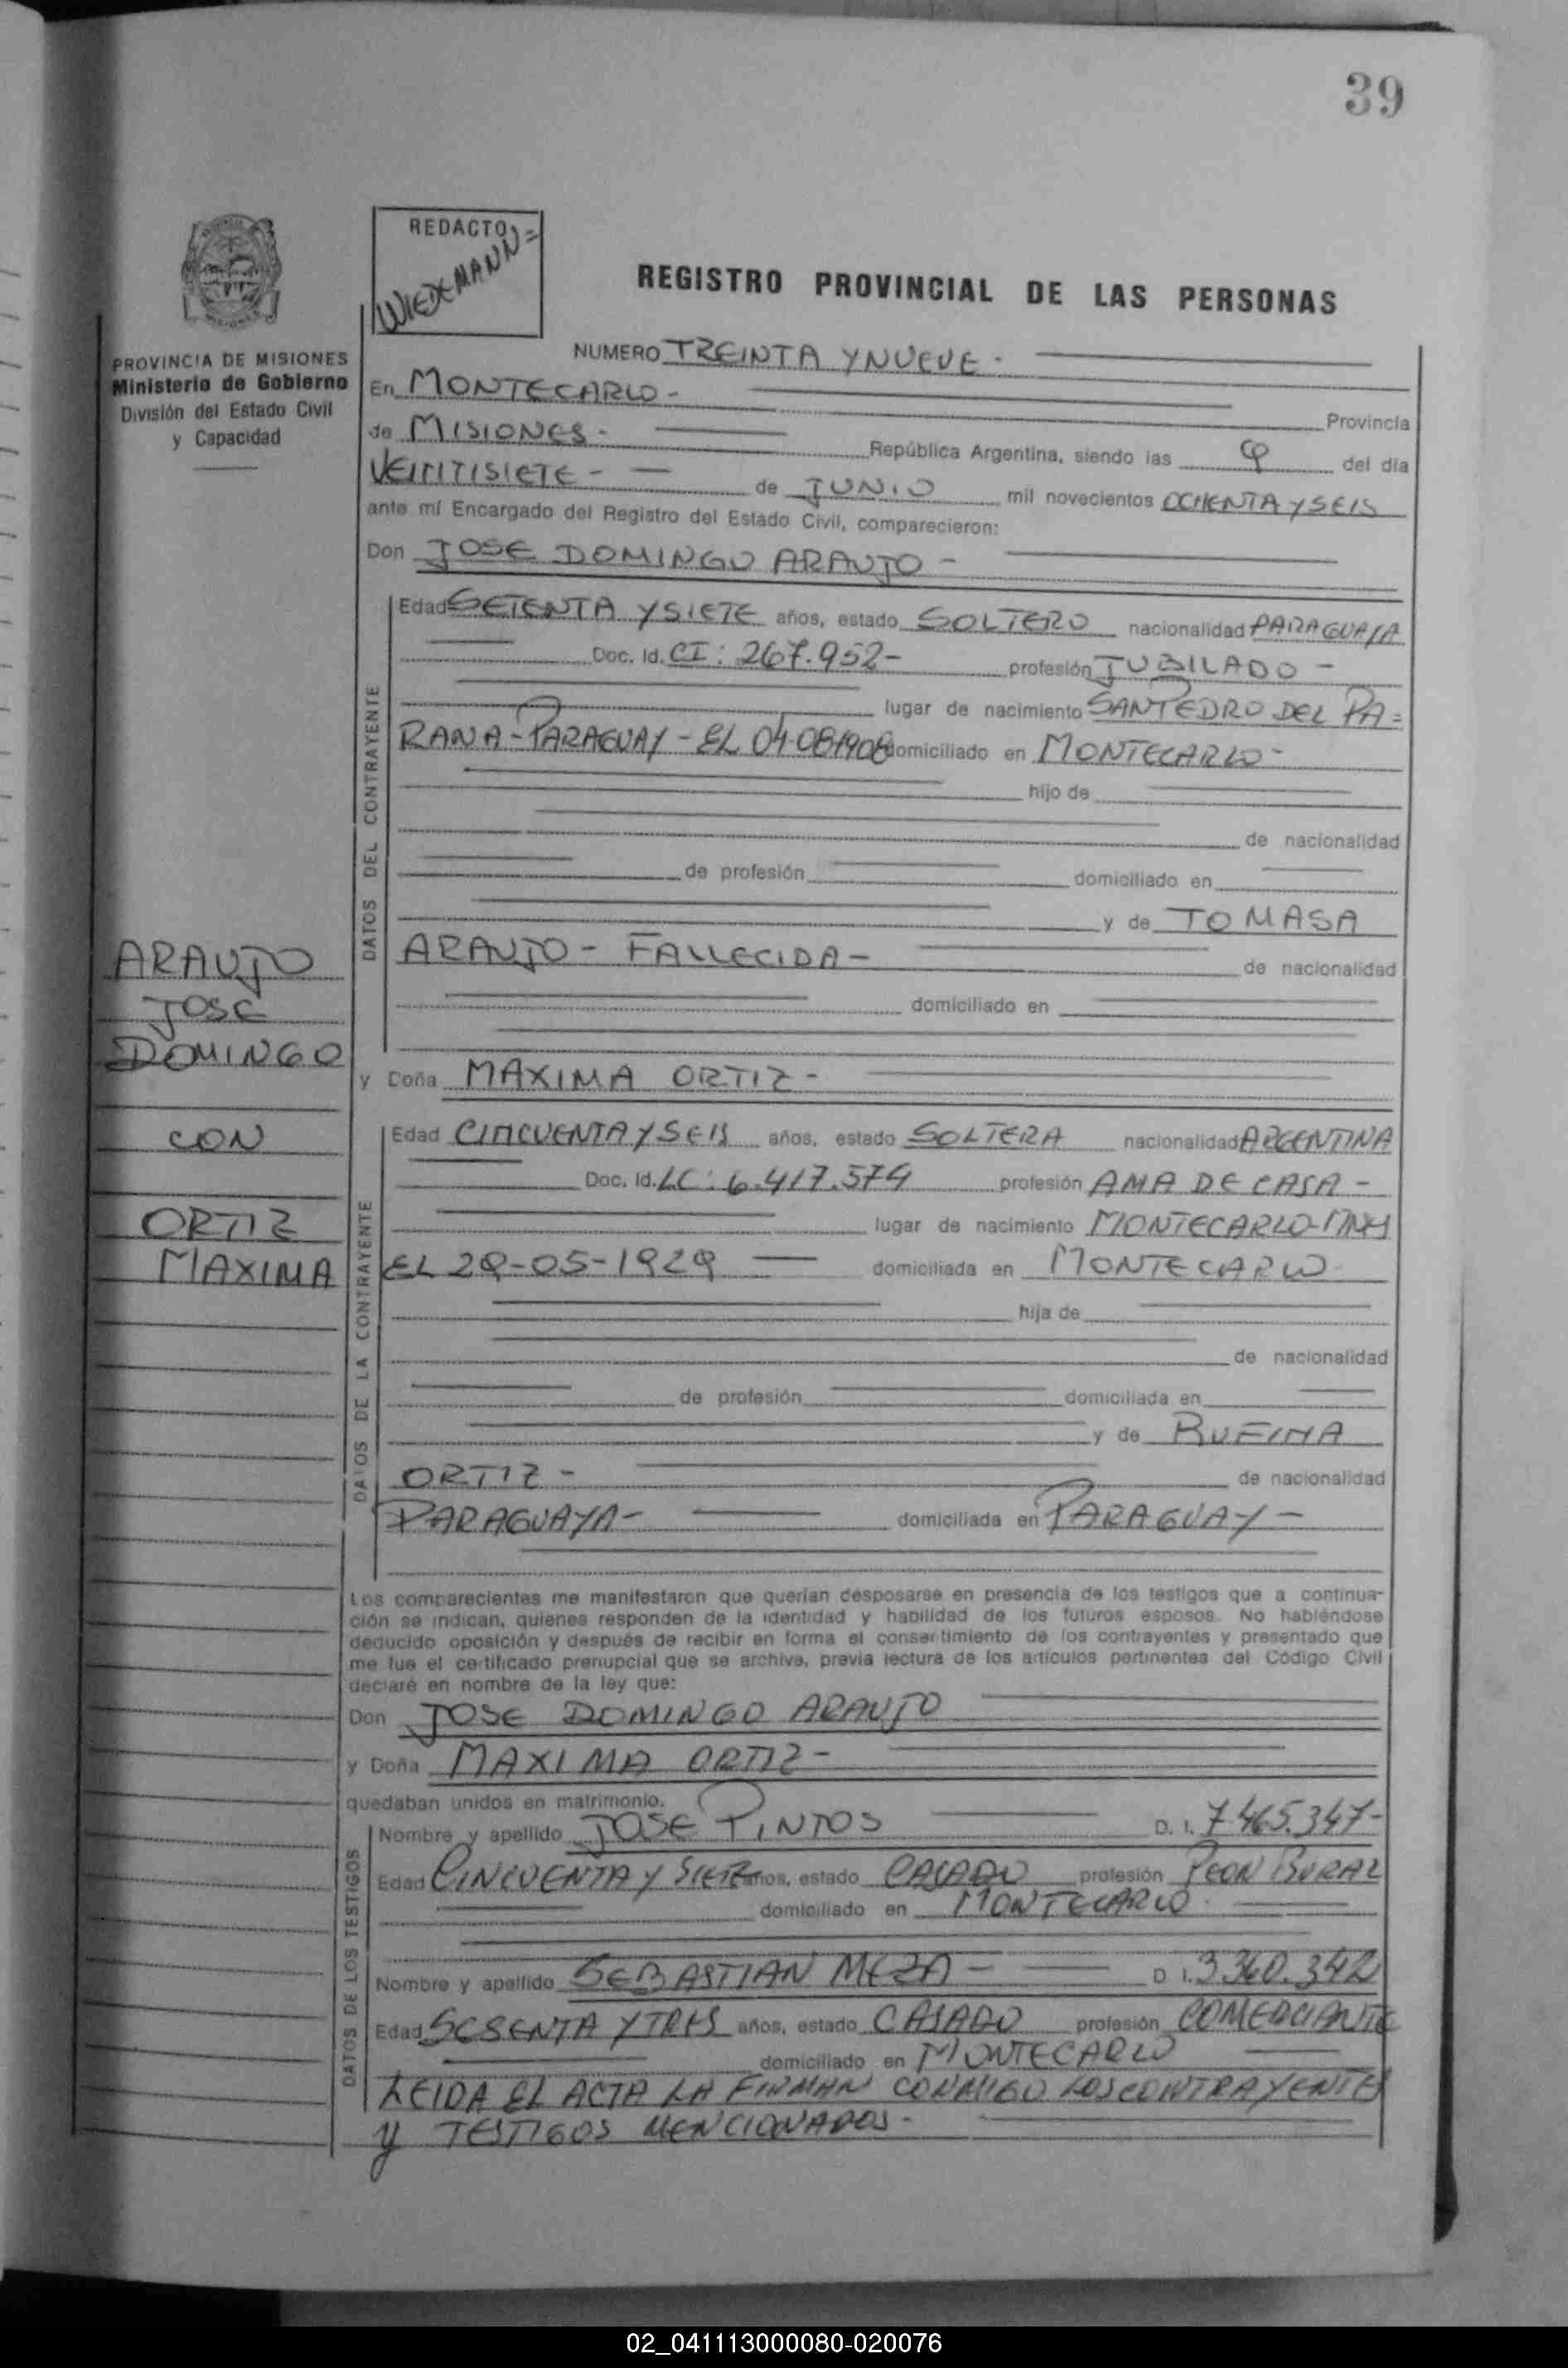 39
REDACTO
WIEDEMANN=
REGISTRO PROVINCIAL DE LAS PERSONAS
PROVINCIA DE MISIONES
Ministerio de Gobierno
División del Estado Civil
y Capacidad
NUMERO TREINTA Y NUEVE -
En MONTECARLO - Provincia
de MISIONES - República Argentina, siendo las 9 del día
VEINTISIETE - de JUNIO mil novecientos OCHENTA Y SEIS
ante mí Encargado del Registro del Estado Civil, comparecieron:
Don JOSE DOMINGO ARAUJO -
DATOS DEL CONTRAYENTE
Edad SETENTA Y SIETE años, estado SOLTERO nacionalidad PARAGUAYA
Doc. Id. CI: 267.952- profesión JUBILADO -
lugar de nacimiento SAN PEDRO DEL PA=
RANA - PARAGUAY - EL 04 08 1908 domiciliado en MONTECARLO -
hijo de
de nacionalidad
de profesión domiciliado en
y de TOMASA
ARAUJO - FALLECIDA - de nacionalidad
domiciliado en
ARAUJO
JOSE
DOMINGO
CON
ORTIZ
MAXIMA
y Doña MAXIMA ORTIZ -
DATOS DE LA CONTRAYENTE
Edad CINCUENTA Y SEIS años, estado SOLTERA nacionalidad ARGENTINA
Doc. Id. LC: 6.417.574 profesión AMA DE CASA -
lugar de nacimiento MONTECARLO-MNES
EL 29-05-1929 domiciliada en MONTECARLO
hija de
de nacionalidad
de profesión domiciliada en
y de RUFINA
ORTIZ - de nacionalidad
PARAGUAYA - domiciliada en PARAGUAY -
Los comparecientes me manifestaron que querían desposarse en presencia de los testigos que a continua-
ción se indican, quienes responden de la identidad y habilidad de los futuros esposos. No habiéndose
deducido oposición y después de recibir en forma el consentimiento de los contrayentes y presentado que
me fue el certificado prenupcial que se archiva, previa lectura de los artículos pertinentes del Código Civil
declaré en nombre de la ley que:
Don JOSE DOMINGO ARAUJO
y Doña MAXIMA ORTIZ -
quedaban unidos en matrimonio.
DATOS DE LOS TESTIGOS
Nombre y apellido JOSE PINTOS D. I. 7.465.347-
Edad CINCUENTA Y SIETE años, estado CASADO profesión PEON RURAL
domiciliado en MONTECARLO
Nombre y apellido SEBASTIAN MEZA - D I. 3.360.342
Edad SESENTA Y TRES años, estado CASADO profesión COMERCIANTE
domiciliado en MONTECARLO
LEIDA EL ACTA LA FIRMAN CONMIGO LOS CONTRAYENTES
y TESTIGOS MENCIONADOS -
02_041113000080-020076